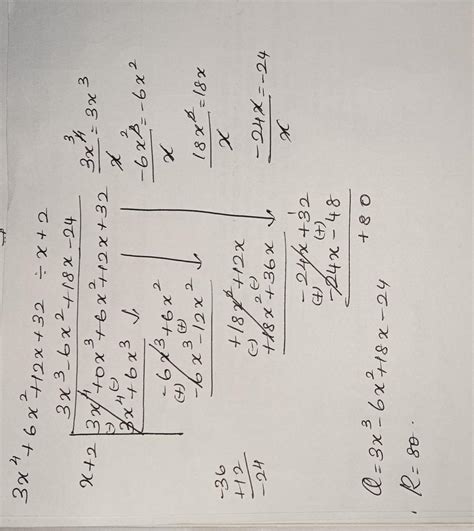 3x⁴ + 6x² + 12x + 32 ÷ x + 2
3x³ - 6x² + 18x - 24
x + 2 3x⁴ + 0x³ + 6x² + 12x + 32
(-) (-)
3x⁴ + 6x³
-6x³ + 6x²
(+) (+)
-6x³ - 12x²
+18x² + 12x
(-) (-)
+18x² + 36x
-24x + 32
(+) (+)
-24x - 48
+80
3x⁴/x = 3x³
-6x³/x = -6x²
18x²/x = 18x
-24x/x = -24
-36
+12
-24
Q = 3x³ - 6x² + 18x - 24
R = 80.